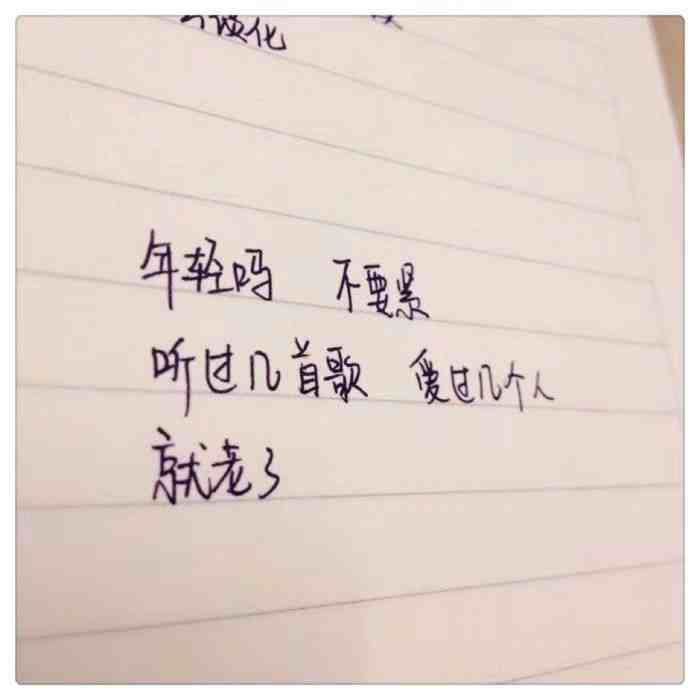 年轻吗 不要紧
听过几首歌 爱过几个人
就老了